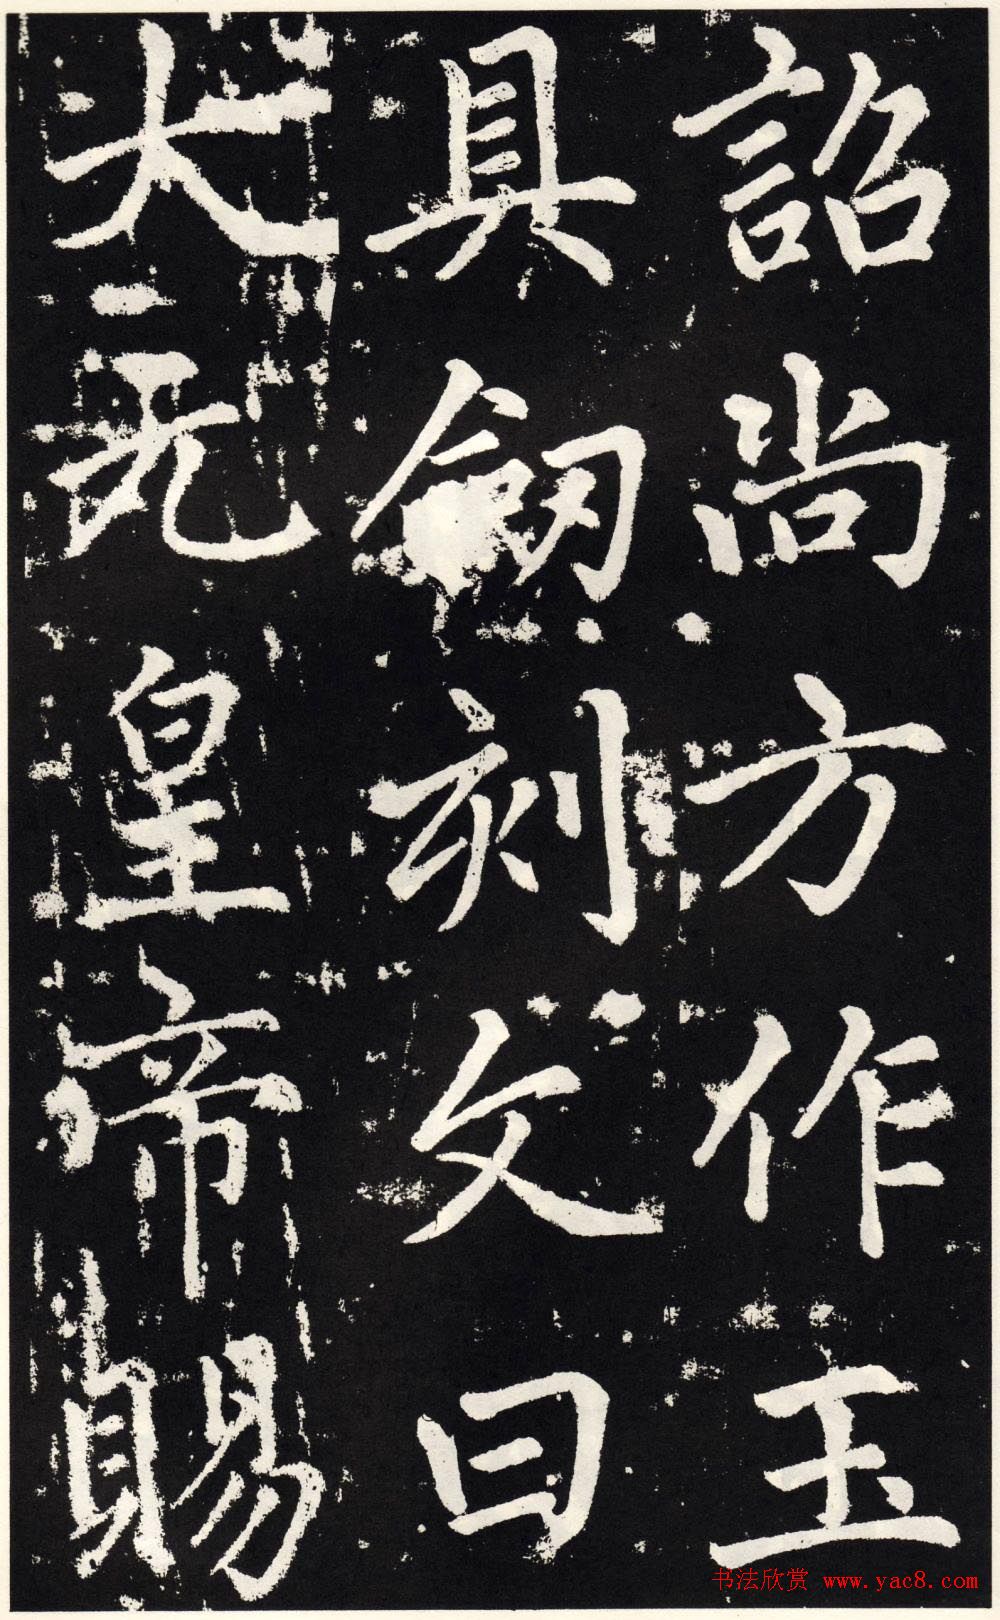 詔尚方作玉
具劒刻文曰
大无皇帝賜
书法欣赏 www.yac8.com